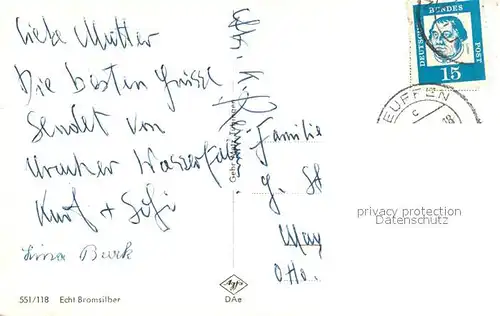 Liebe Mutter
Die besten Grüsse
Sendet von
Uracher Wasserfall
Kurt + Sofi
Familie
G. St
May
Otto.
DEUTSCHE BUNDESPOST
15
EUFFEN
c
privacy protection
Datenschutz
551/118 Echt Bromsilber
Agfa
DAe